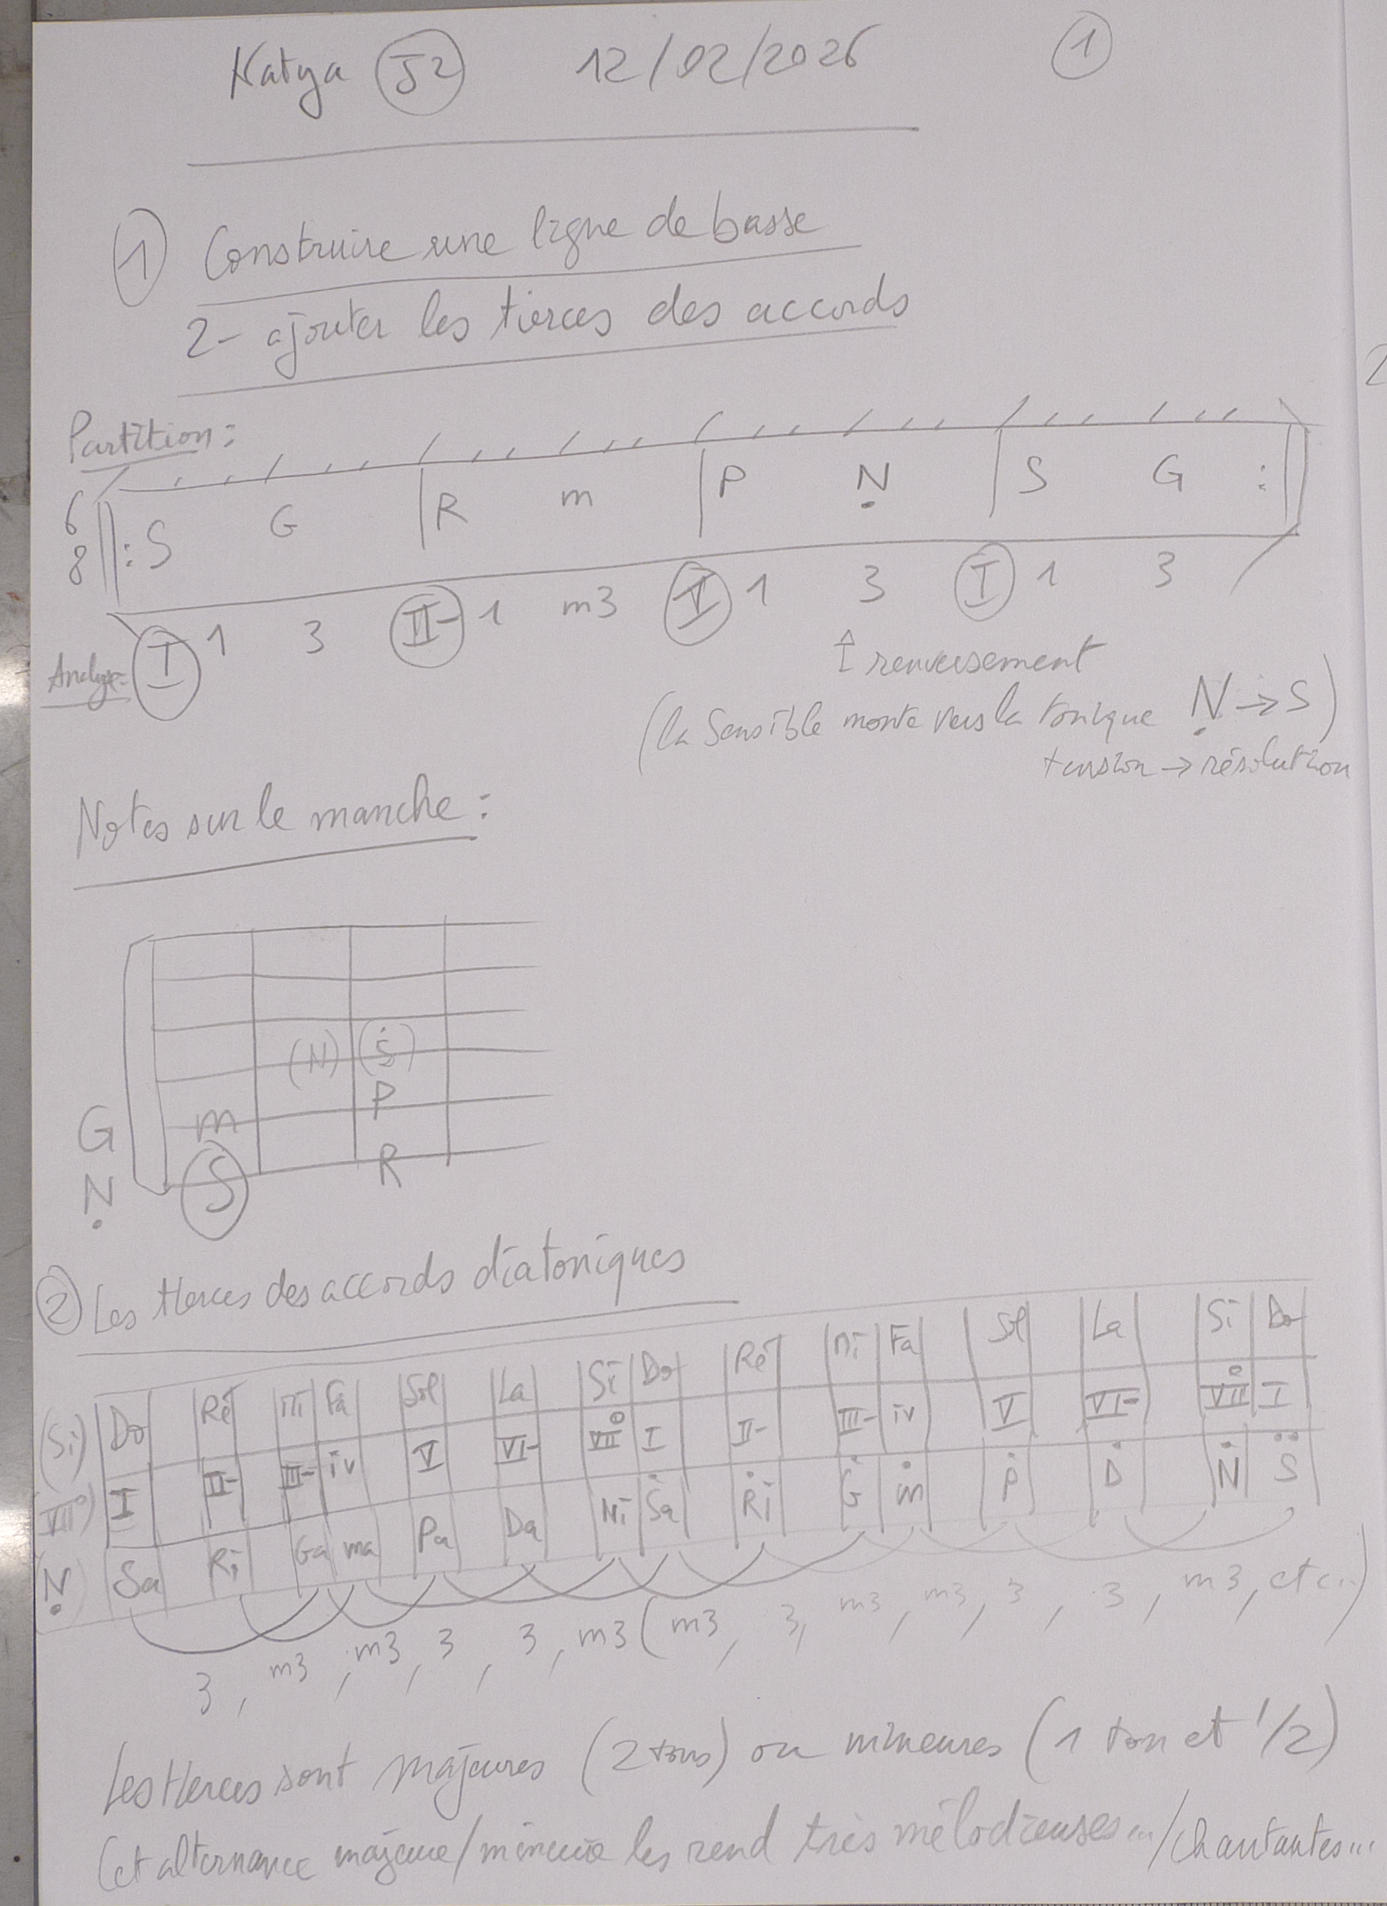 Katya J2 12/02/2026 1
1 Construire une ligne de basse
2- ajouter les tierces des accords
Partition :
6
8 ||: S G | R m | P Ṇ | S G :||
Analyse: I 1 3 II- 1 m3 V 1 3 I 1 3
↑ renversement
(la sensible monte vers la tonique Ṇ → S)
tension → résolution
Notes sur le manche :
(N) (Ṡ)
P
G m
Ṇ S R
2 Les tierces des accords diatoniques
(Si) Do Ré Mi Fa Sol La Si Do Ré Mi Fa Sol La Si Do
VII°) I II- III- iv V VI- VII° I II- III- iv V VI- VII° I
(Ṇ) Sa Ri Ga ma Pa Da Ni Ṡa Ṙi Ġ ṁ Ṗ Ḋ Ṅ S̈
3, m3, m3, 3, 3, m3 (m3, 3, m3, m3, 3, 3, m3, etc..)
Les tierces sont majeures (2 tons) ou mineures (1 ton et 1/2)
Cet alternance majeure/mineure les rend très mélodieuses.../chantantes...